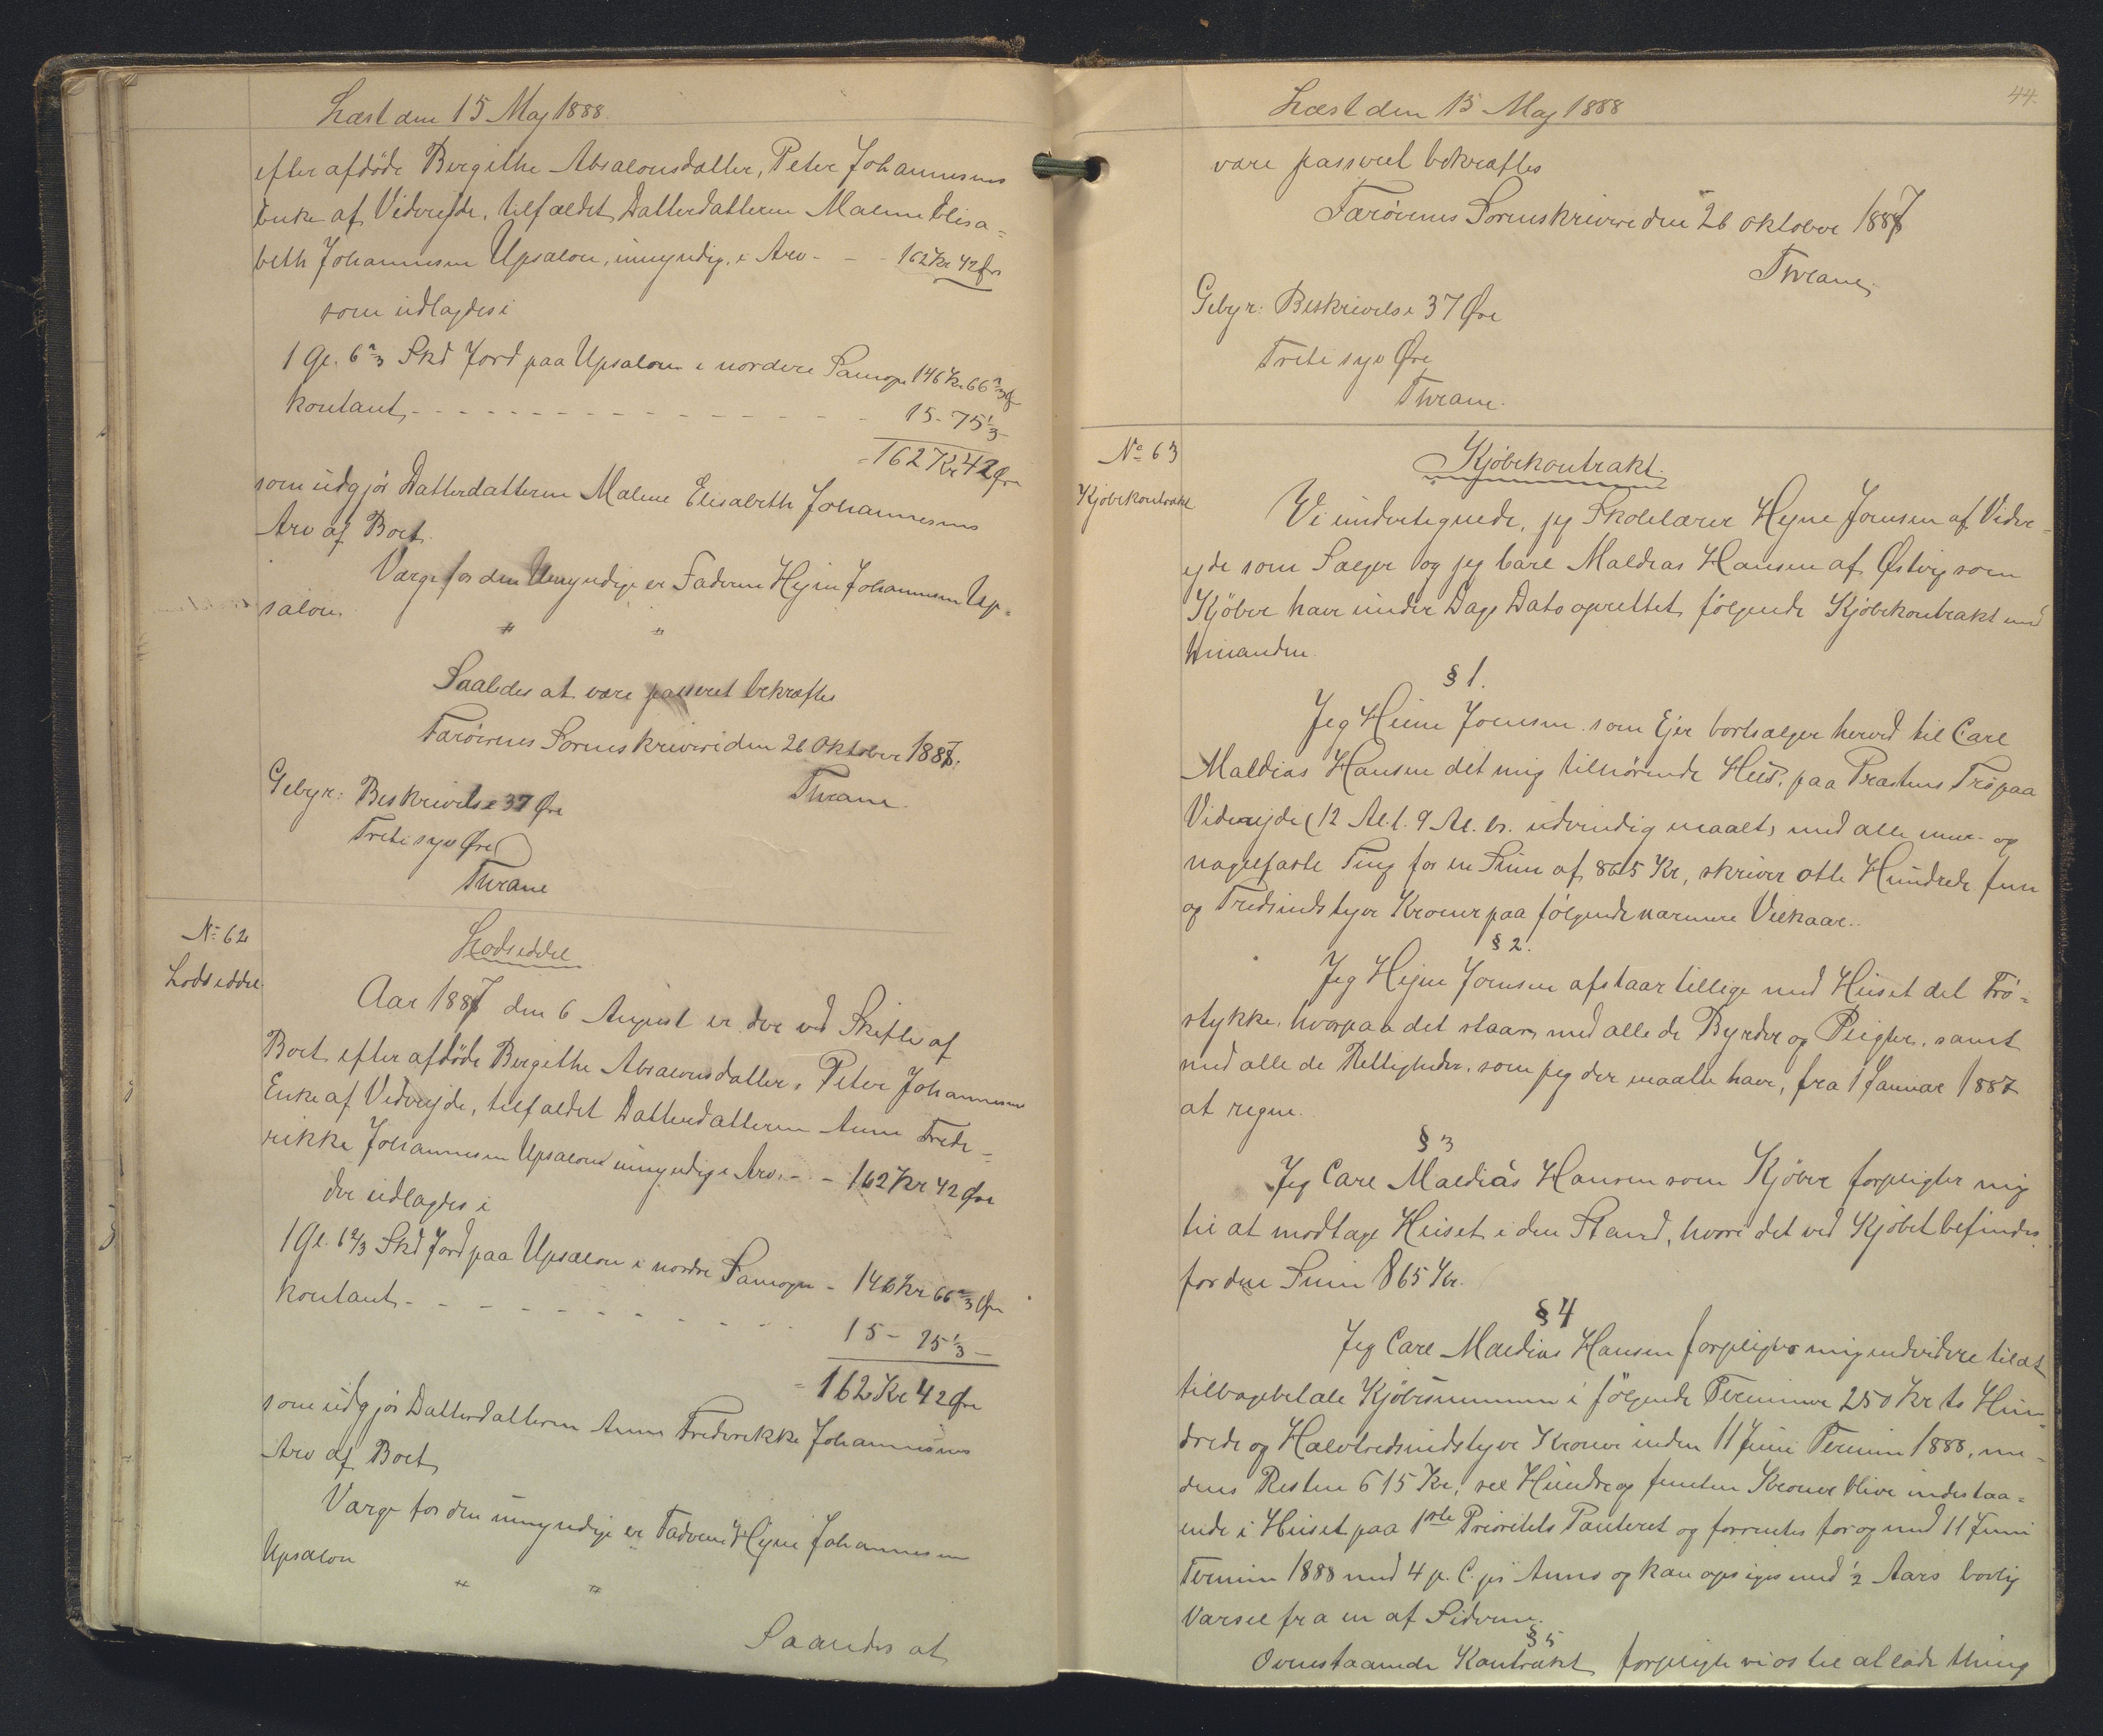 Læst den 15 Maj 1888.
efter afdøde Bergithe Absalonsdatter, Peter Johannesens
Enke af Viderejde, tilfaldet Datterdatteren Malene Elisa=
beth Johannesen Upsalon, umyndig, i Arv - - - 162 Kr 42 Øre
som udlagdes i
1 Gl. 6 2/3 Skd Jord paa Upsalon i nordre Samogn 146 Kr. 66 2/3 Ø
kontant - - - - - - - - - - - - - - - - 15 - 75 1/3 -
= 162 Kr 42 Øre
som udgjør Datterdatteren Malene Elisabeth Johannesens
Arv af Boet.
Værge for den Umyndige er Faderen Hejne Johannesen Up=
salon.
" "
Saaledes at være passeret bekræftes
Færøernes Sorenskriveri den 26 Oktober 1887.
Thrane.
Gebyr: Beskrivelse 37 Øre
Treti syv Øre
Thrane
No 62
Lodseddel
Lodseddel
Aar 1887 den 6 August er der ved Skifte af
Boet efter afdøde Bergithe Absalonsdatter, Peter Johannesens
Enke af Viderejde, tilfaldet Datterdatteren Anne Frede=
rikke Johannesen Upsalon umyndig i Arv. - - 162 Kr 42 Øre
der udlagdes i
1 Gl. 6 2/3 Skd Jord paa Upsalon i nordre Samogn - 146 Kr 66 2/3 Øre
kontant - - - - - - - - - - - 15 - 75 1/3 -
= 162 Kr 42 Øre
som udgjør Datterdatteren Anne Frederikke Johannesens
Arv af Boet,
Værge for den umyndige er Faderen Hejne Johannesen
Upsalon
" "
Saaledes at
44.
Læst den 15 Maj 1888
være passeret bekræftes
Færøernes Sorenskriveri den 26 Oktober 1887
Thrane,
Gebyr: Beskrivelse 37 Øre
Treti syv Øre
Thrane.
No 63
Kjøbekontrakt
Kjøbekontrakt.
Vi undertegnede, jeg Skolelærer Hejne Joensen af Vider=
ejde som Sælger og jeg Carl Maldias Hansen af Østvig som
Kjøber have under Dags Dato oprettet følgende Kjøbekontrakt med
hinanden.
§ 1.
Jeg Heine Joensen som Ejer bortsælger herved til Carl
Maldias Hansen det mig tilhørende Hus, paa Præstens Trø paa
Viderejde (12 Al. l. 9 Al. br. udvendig maalt) med alle mur- og
nagelfaste Ting for en Sum af 865 Kr, skriver otte Hundrede fem
og Tredsindstyve Kroner paa følgende nærmere Vilkaar.
§ 2.
Jeg Hejne Joensen afstaar tillige med Huset det Trø=
stykke, hvorpaa det staar, med alle de Byrder og Pligter, samt
med alle de Rettigheder, som jeg der maatte have, fra 1 Januar 1887
at regne.
§ 3
Jeg Carl Maldias Hansen som Kjøber forpligter mig
til at modtage Huset i den Stand, hvori det ved Kjøbet befindes
for den Sum 865 Kr.
§ 4
Jeg Carl Maldias Hansen forpligter mig endvidere til at
tilbagebetale Kjøbesummen i følgende Terminer 250 Kr to Hun=
drede og Halvtredsindstyve Kroner inden 11 Juni Termin 1888, me=
dens Resten 615 Kr, sex Hundre og femten Kroner blive indestaa=
ende i Huset paa 1ste Prioritets Panteret og forrentes for og med 11 Juni
Termin 1888 med 4 p. C. pr Anno og kan opsiges med 1/2 Aars lovlig
Varsel fra en af Siderne.
§ 5
Ovenstaaende Kontrakt forpligte vi os til at lade thing